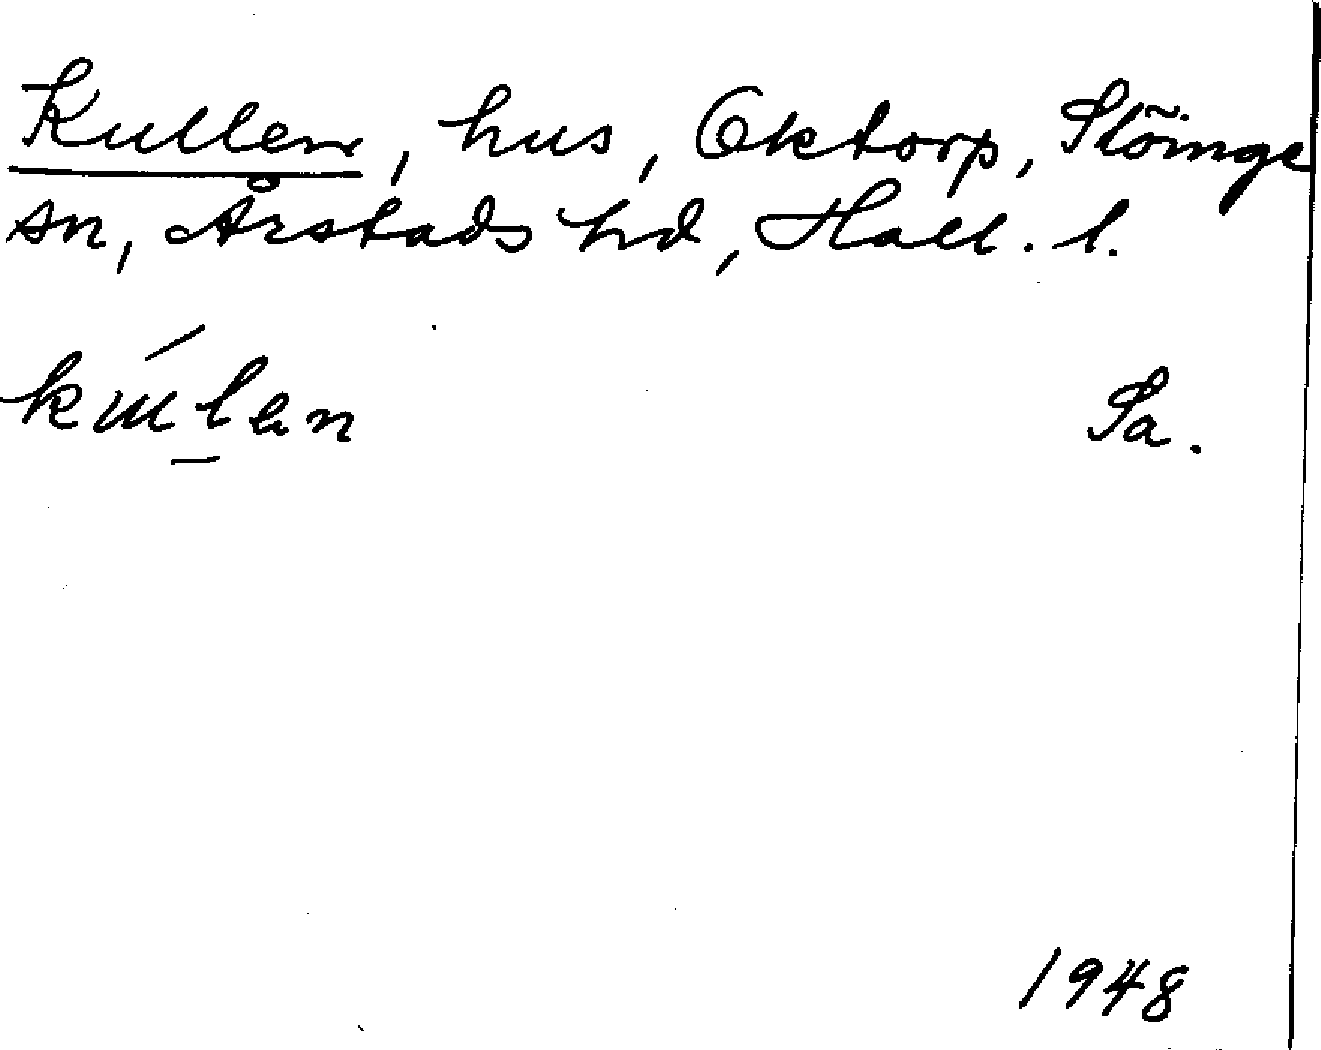 Kullen, hus, Oktorp, Slöinge
sn, Årstads hd, Hall. l.
Sa.
1948